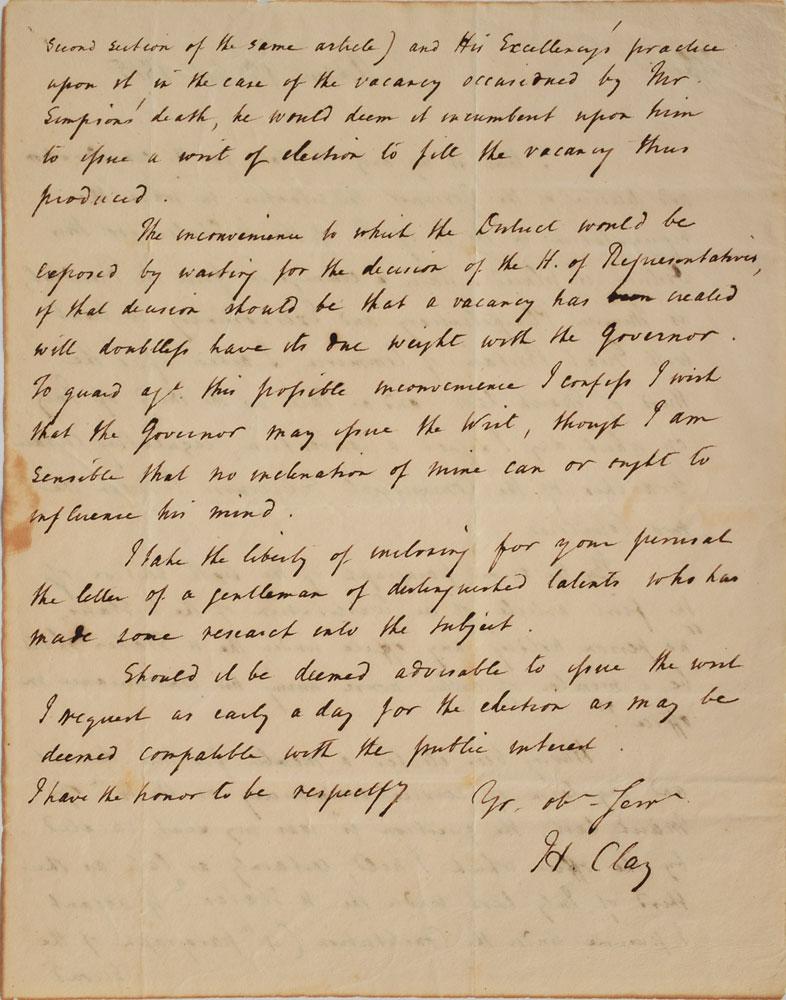 second section of the same article) and His Excellency's practice
upon it in the case of the vacancy occasioned by Mr.
Simpson's death, he would deem it incumbent upon him
to issue a writ of election to fill the vacancy thus
produced.
The inconvenience to which the District would be
exposed by waiting for the decision of the H. of Representatives,
if that decision should be that a vacancy has created
will doubtless have its due weight with the Governor.
To guard agt. this possible inconvenience I confess I wish
that the Governor may issue the Writ, though I am
sensible that no inclination of mine can or ought to
influence his mind.
I take the liberty of inclosing for your perusal
the letter of a gentleman of distinguished talents who has
made some research into the subject.
Should it be deemed advisable to issue the writ
I request as early a day for the election as may be
deemed compatible with the public interest.
I have the honor to be respectfy
Yr. obt. Servt.
H. Clay